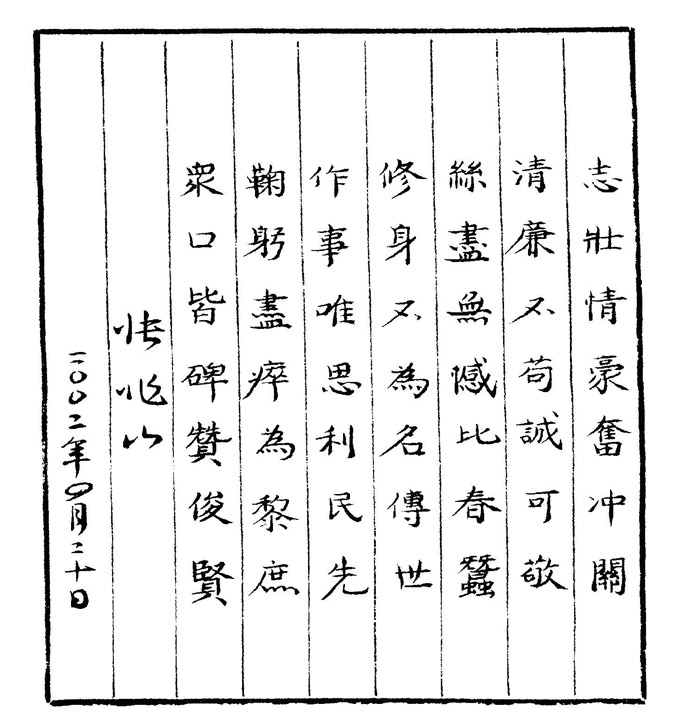 志壯情豪奮冲關
清廉不苟誠可敬
絲盡無憾比春蠶
修身不為名傳世
作事唯思利民先
鞠躬盡瘁為黎庶
衆口皆碑贊俊賢
張兆山
二〇〇二年四月二十日